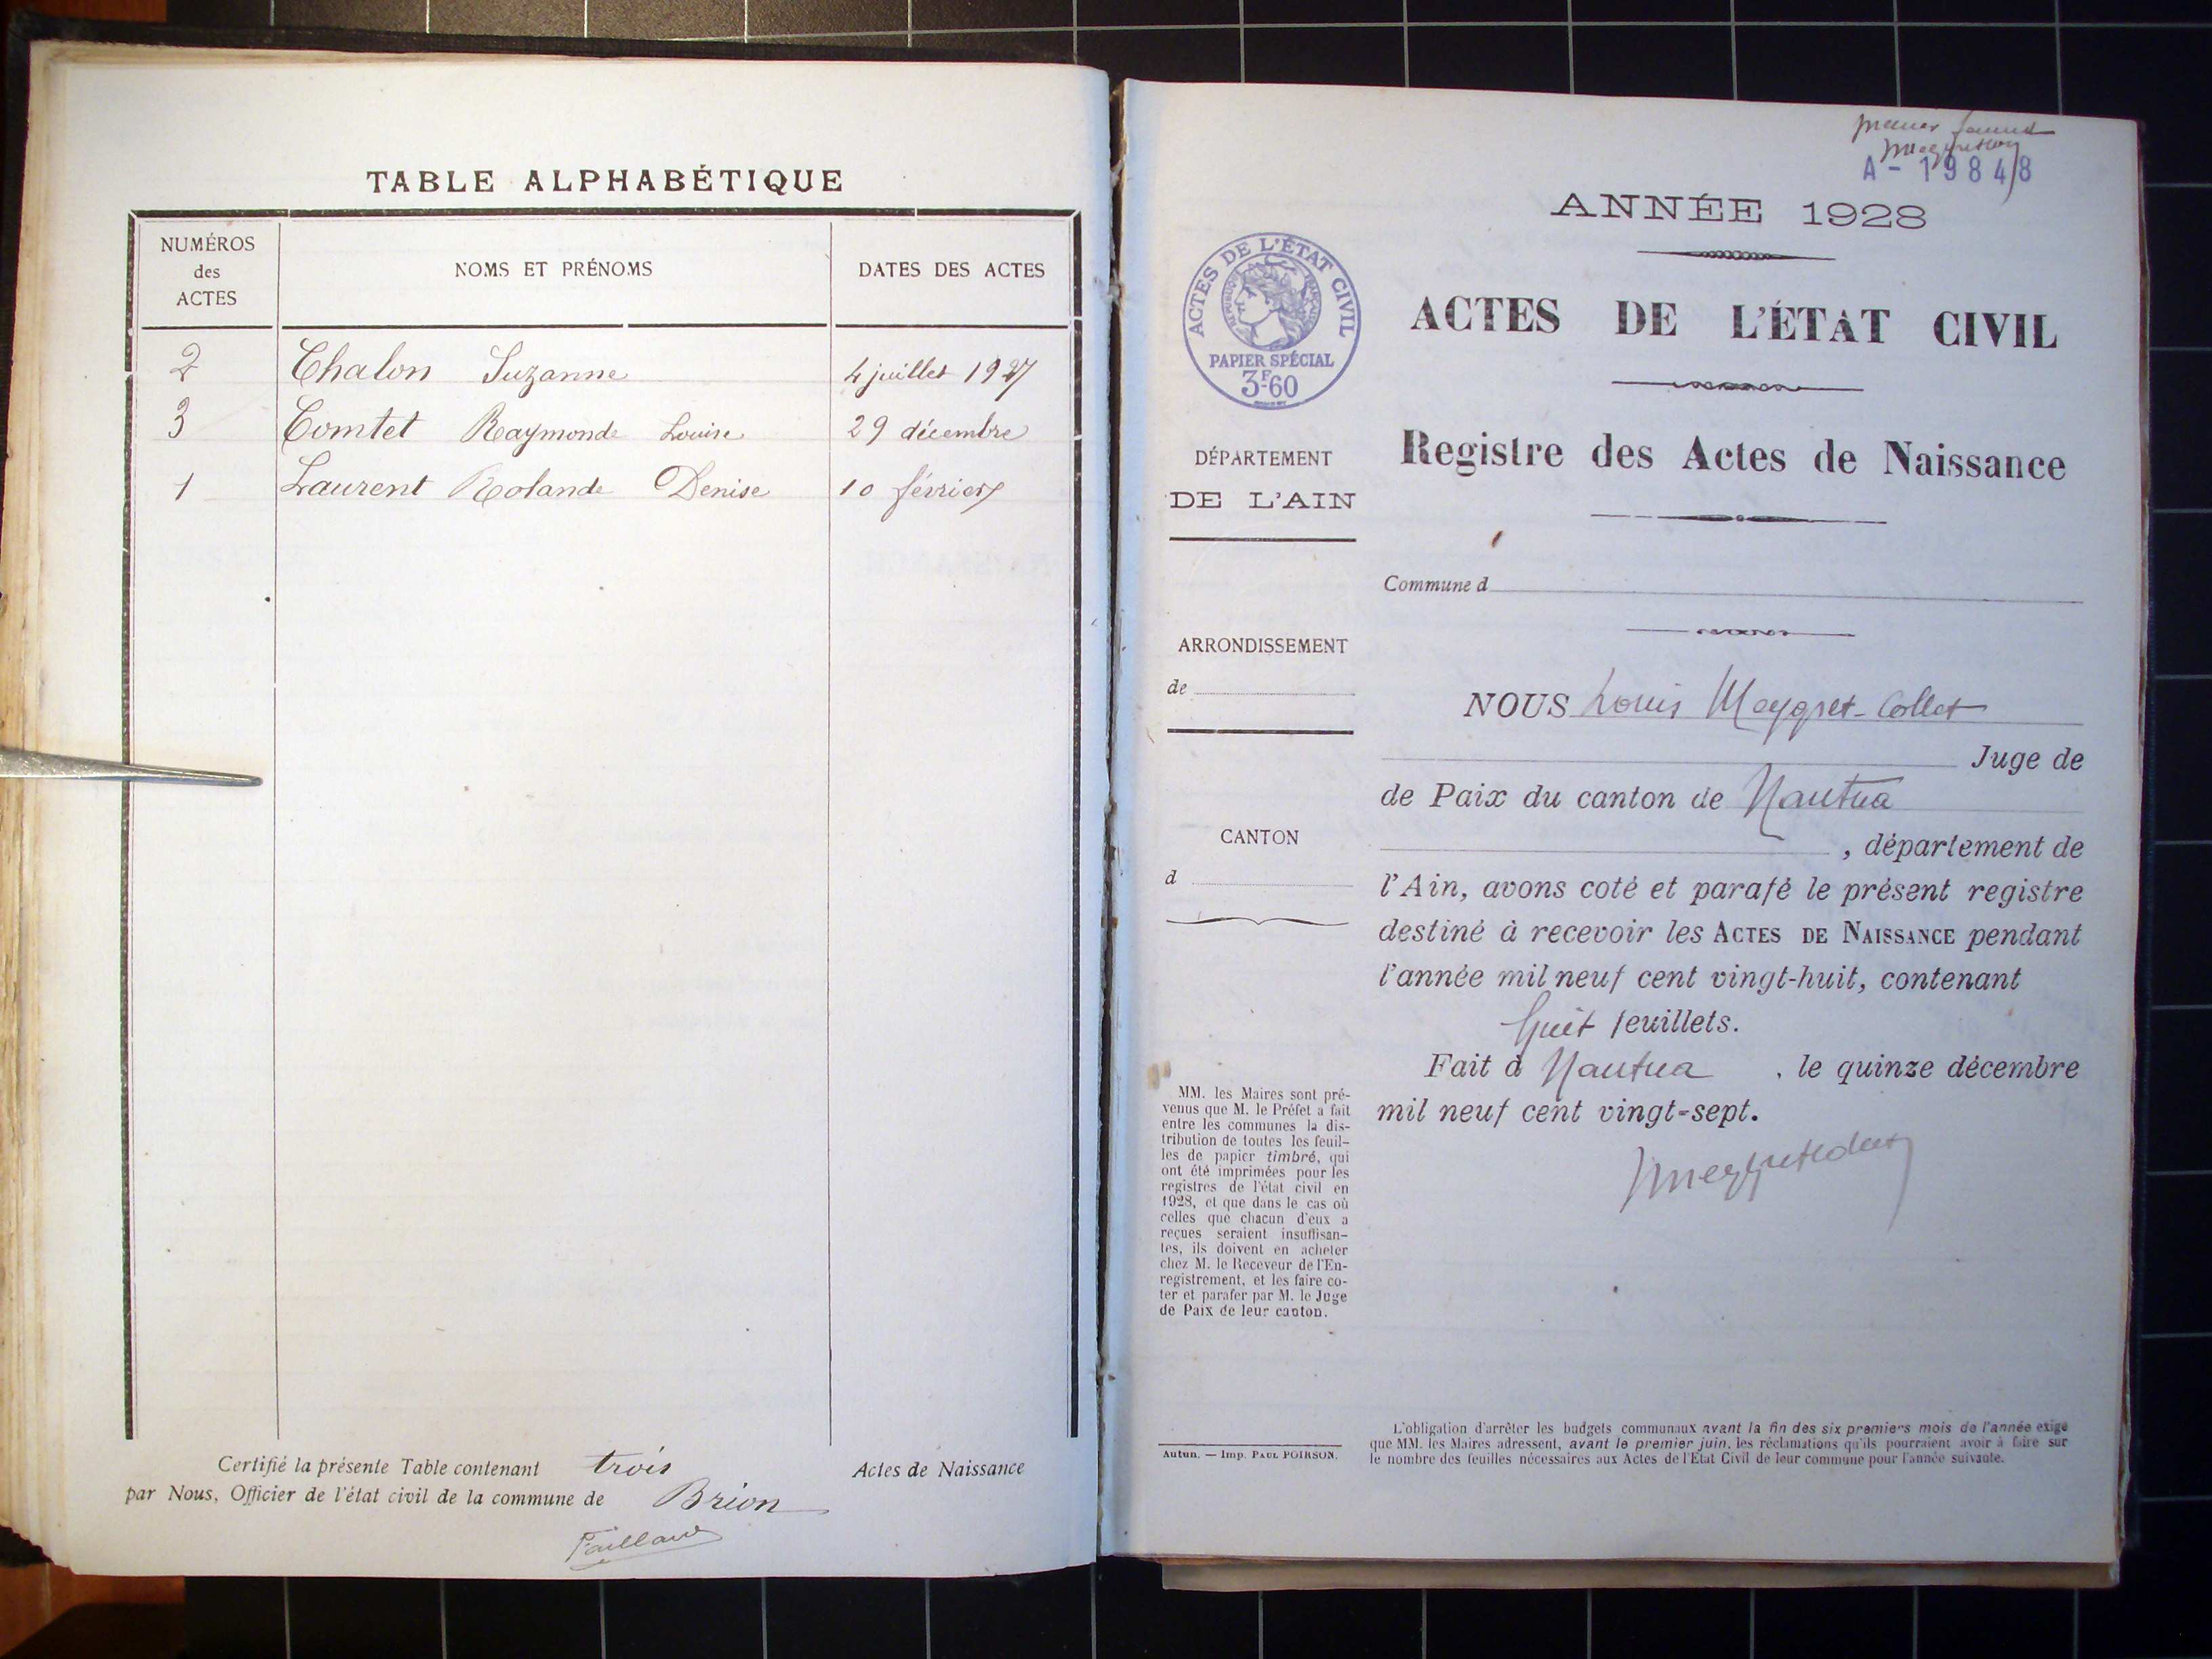 TABLE ALPHABÉTIQUE
NUMÉROS
des
ACTES
NOMS ET PRÉNOMS
DATES DES ACTES
2 Chalon Suzanne 4 juillet 1927
3 Comtet Raymonde Louise 29 décembre
1 Laurent Rolande Denise 10 février
Certifié la présente Table contenant trois Actes de Naissance
par Nous, Officier de l'état civil de la commune de Brion
premier
A - 19848
ANNÉE 1928
ACTES DE L'ÉTAT CIVIL
PAPIER SPÉCIAL
3F60
ACTES DE L'ÉTAT CIVIL
Registre des Actes de Naissance
DÉPARTEMENT
DE L'AIN
Commune d
ARRONDISSEMENT
de
CANTON
d
NOUS Louis Meygret-Collet
Juge de
de Paix du canton de Nantua
, département de
l'Ain, avons coté et parafé le présent registre
destiné à recevoir les ACTES DE NAISSANCE pendant
l'année mil neuf cent vingt-huit, contenant
huit feuillets.
Fait à Nantua , le quinze décembre
mil neuf cent vingt-sept.
MM. les Maires sont pré-
venus que M. le Préfet a fait
entre les communes la dis-
tribution de toutes les feuil-
les de papier timbré, qui
ont été imprimées pour les
registres de l'état civil en
1928, et que dans le cas où
celles que chacun d'eux a
reçues seraient insuffisan-
tes, ils doivent en acheter
chez M. le Receveur de l'En-
registrement, et les faire co-
ter et parafer par M. le Juge
de Paix de leur canton.
Autun. — Imp. PAUL POIRSON.
L'obligation d'arrêter les budgets communaux avant la fin des six premiers mois de l'année exige
que MM. les Maires adressent, avant le premier juin, les réclamations qu'ils pourraient avoir à faire sur
le nombre des feuilles nécessaires aux Actes de l'Etat Civil de leur commune pour l'année suivante.